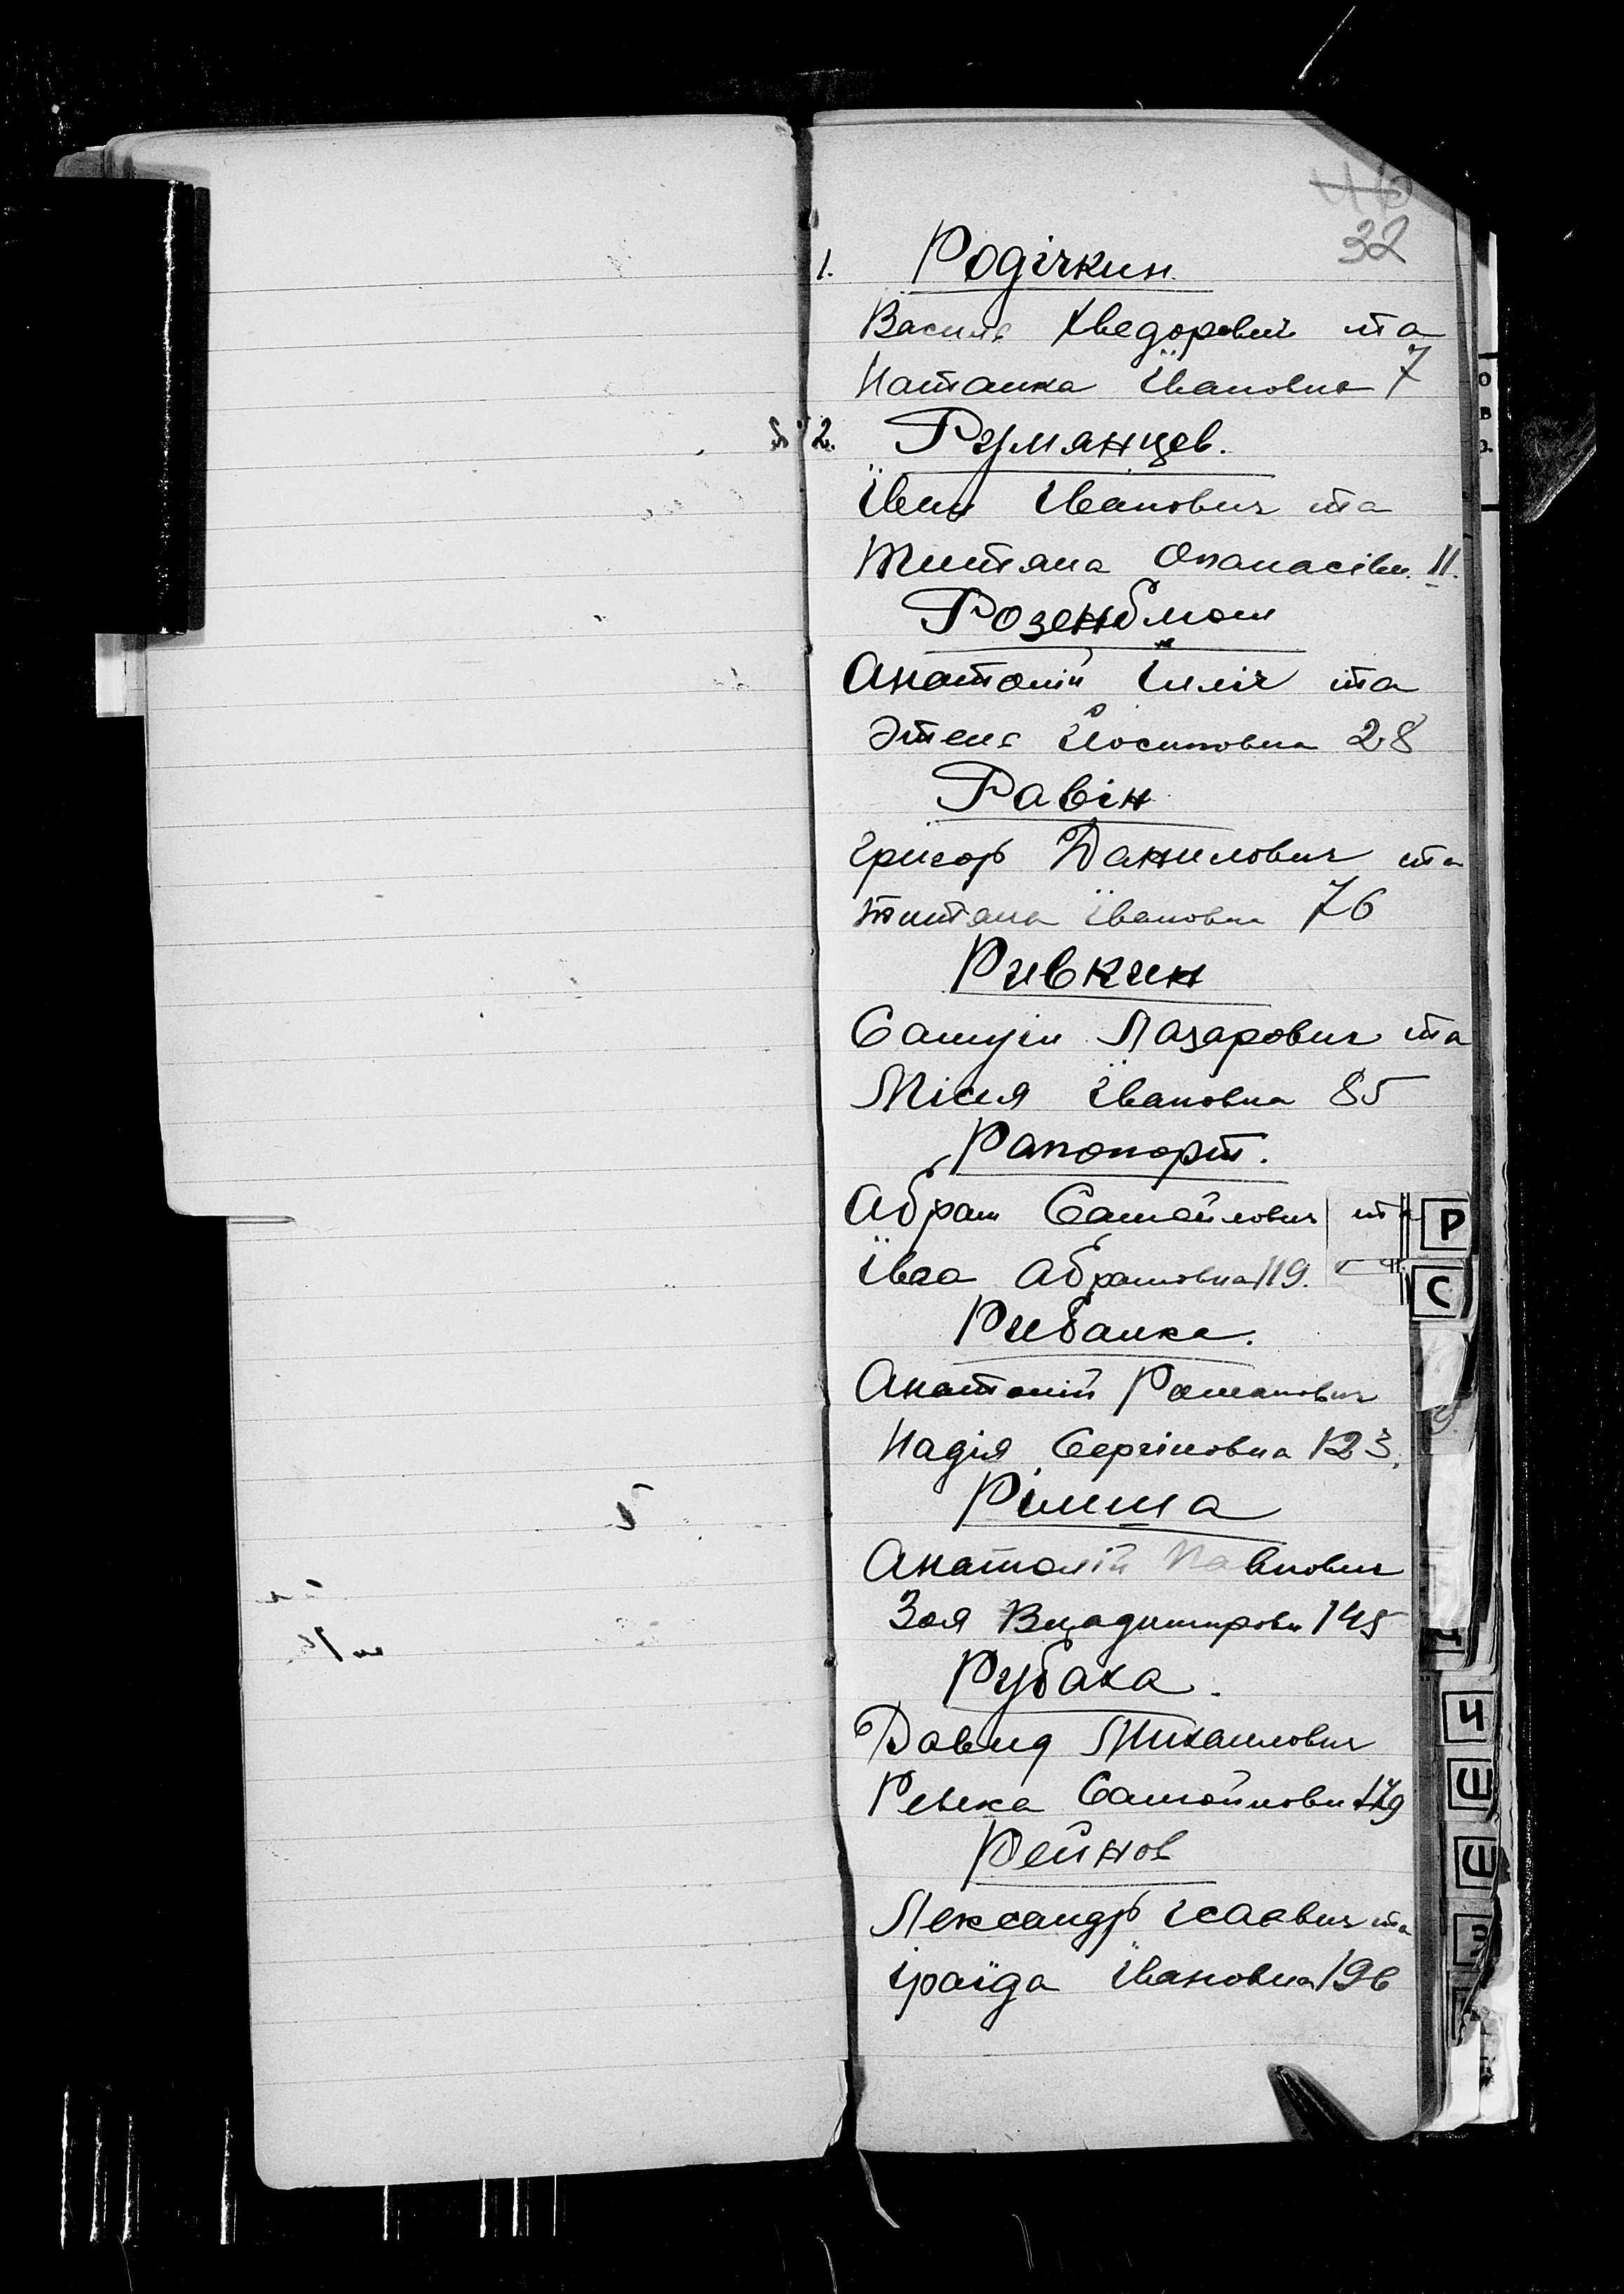 32
1. Родічкин
Василь Хведорович та
Наталка Івановна 7
2. Румянцев.
Іван Іванович та
Титяна Опанасівн. 11.
Розенблат
Анатолій Ілліч та
Этеля Йосиповна 28
Равін
Григор Данилович та
Титяна Івановна 76
Ривкин
Самуіл Лазарович та
Місля Івановна 85
Рапопорт.
Абрам Самойлович та
Івга Абрамовна 119.
Рибалка.
Анатолій Романович
Надія Сергіновна 123.
Рілша
Анатолій Павлович
Зоя Владимировн 145
Рубаха.
Давид Михаилович
Ревека Самойловн 179
Рейнов
Лександр Ісаевич та
Іраїда Івановна 196
Р
С
Ч
Ш
Щ
Э